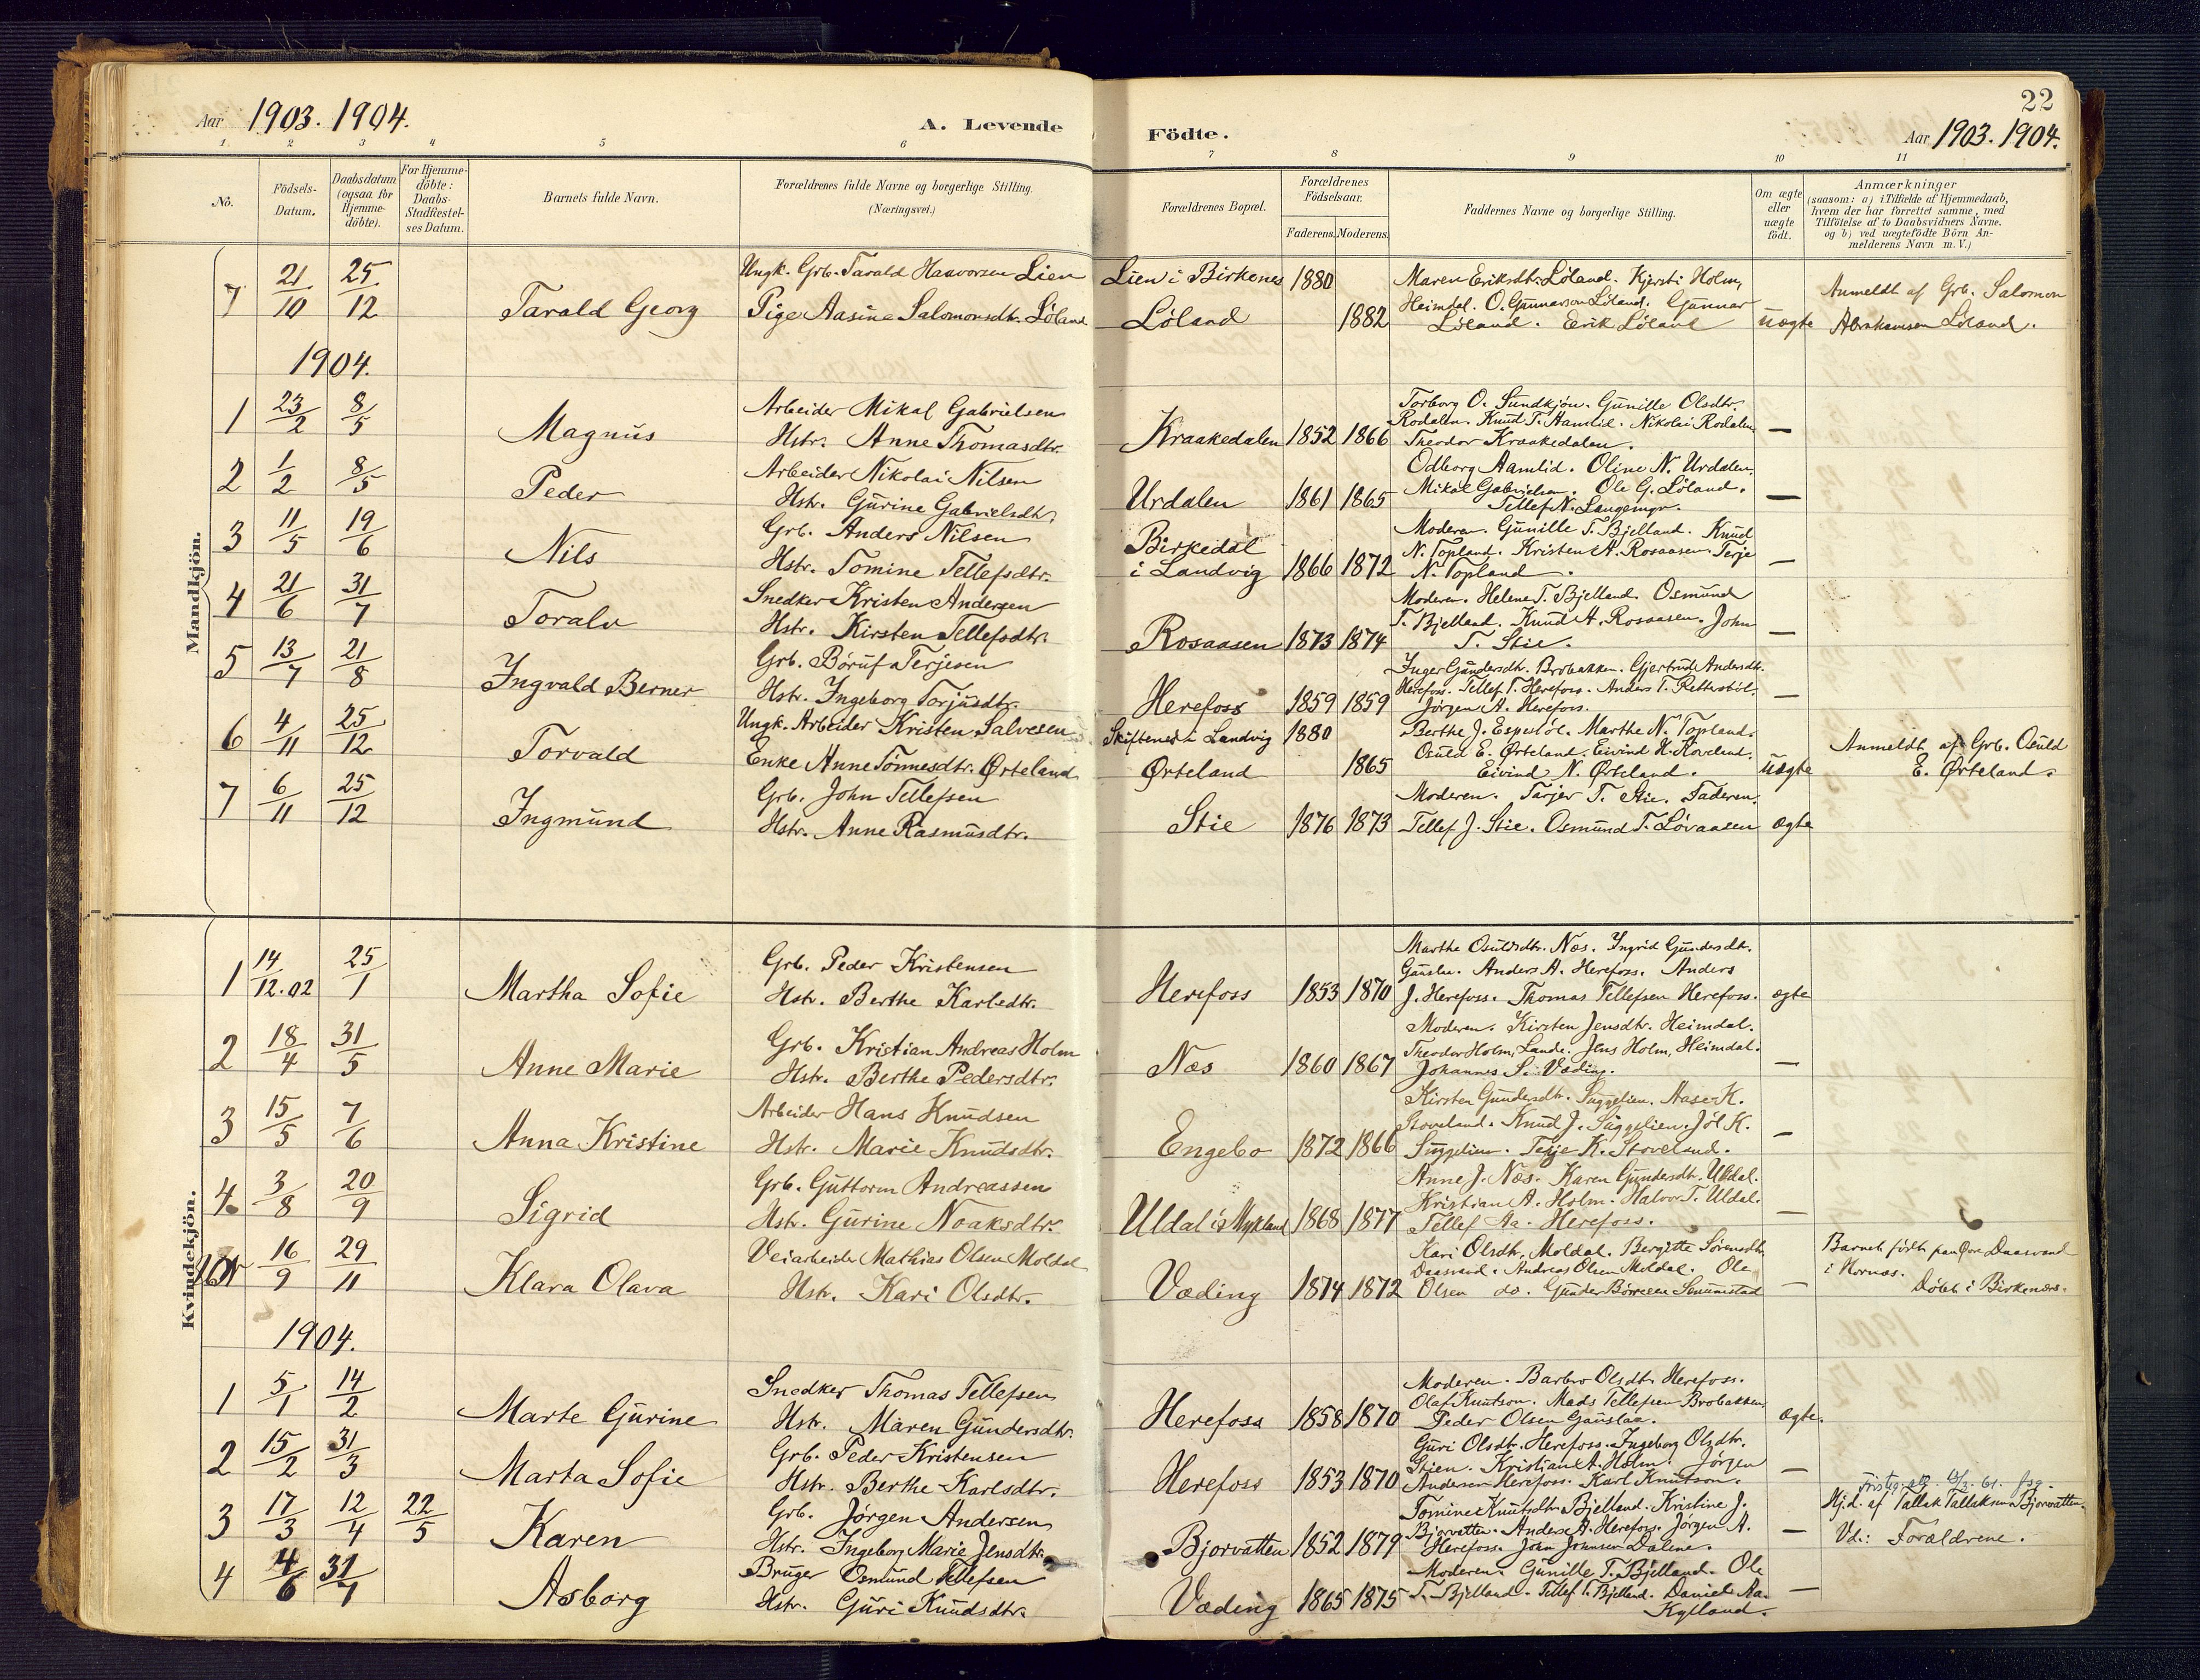 22
Aar 1903. 1904.
A. Levende Födte.
Aar 1903. 1904.
1 2 3 4 5 6 7 8 9 10 11
No.
Födsels-Datum.
Daabsdatum (ogsaa for Hjemme-döbte).
For Hjemme-döbte: Daabs-Stadfæstel-ses Datum.
Barnets fulde Navn.
Forældrenes fulde Navne og borgerlige Stilling.
(Næringsvei.)
Forældrenes Bopæl.
Forældrenes Födselsaar.
Faderens. Moderens.
Faddernes Navne og borgerlige Stilling.
Om ægte eller uægte födt.
Anmærkninger
(saasom: a) i Tilfælde af Hjemmedaab,
hvem der har forrettet samme, med
Tilföielse af to Daabsvidners Navne.
og b) ved uægtefödte Börn An-
melderens Navn m. V.)
Mandkjön.
7 21/10 25/12 Tarald Georg
Ungk. Grb. Tarald Haavorsen Lien
Pige Aasine Salomonsdtr. Løland
Lien i Birkenes 1880
Løland 1882
Maren Eriksdtr. Løland. Kjersti Holm,
Heimdal. O. Gunnarson Løland. Gunnar
Løland. Erik Løland
uægte
Anmeldt af Grb. Salomon
Abrahamsen Løland.
1904.
1 23/2 8/5 Magnus
Arbeider Mikal Gabrielsen
Hstr. Anne Thomasdtr.
Kraakedalen 1852 1866
Torborg O. Sundkjøn. Gunille Olsdtr.
Rodalen. Knud T. Aamlid. Nikolai Rodalen
Theodor Kraakedalen. —
2 1/2 8/5 Peder
Arbeider Nikolai Nilsen
Hstr. Gurine Gabrielsdtr.
Urdalen 1861 1865
Odborg Aamlid. Oline N. Urdalen.
Mikal Gabrielsen. Ole G. Løland.
Tellef N. Langemyr. —
3 11/5 19/6 Nils
Grb. Anders Nilsen
Hstr. Tomine Tellefsdtr.
Birkedal
i Landvig 1866 1872
Moderen. Gunille T. Bjelland. Knud
N. Topland. Kristen A. Rosaasen. Terje
N. Topland. —
4 21/6 31/7 Toralv
Snedker Kristen Andersen
Hstr. Kirsten Tellefsdtr.
Rosaasen 1873 1874
Moderen. Helene T. Bjelland. Osmund
T. Bjelland. Knud A. Rosaasen. John
T. Stie. —
5 13/7 21/8 Ingvald Berner
Grb. Børuf Terjesen
Hstr. Ingeborg Torjusdtr.
Herefoss 1859 1859
Inger Gundersdtr. Brobakken. Gjertrud Andersdtr.
Herefoss. Tellef T. Herefoss. Anders T. Retterbøl.
Jørgen A. Herefoss. —
6 4/11 25/12 Torvald
Ungk. Arbeider Kristen Salvesen
Enke Anne Tønnesdtr. Ørteland
Skiftenes i Landvig 1880
Ørteland 1865
Berthe J. Espestøl. Marthe N. Topland.
Osuld E. Ørteland. Eivind H. Hoveland.
Eivind N. Ørteland.
uægte
Anmeldt af Grb. Osuld
E. Ørteland.
7 6/11 25/12 Ingmund
Grb. John Tellefsen
Hstr. Anne Rasmusdtr.
Stie 1876 1873
Moderen. Tarjer T. Stie. Faderen.
Tellef J. Stie. Osmund T. Løvaasen
ægte
Kvindekjön.
1 14/12.02 25/1 Martha Sofie
Grb. Peder Kristensen
Hstr. Berthe Karlsdtr.
Herefoss 1853 1870
Marthe Osuldsdtr. Næs. Ingrid Gundersdtr.
Gauslaa. Anders A. Herefoss. Anders
J. Herefoss. Thomas Tellefsen Herefoss.
ægte
2 18/4 31/5 Anne Marie
Grb. Kristian Andreas Holm
Hstr. Berthe Pedersdtr.
Næs 1860 1867
Moderen. Kirsten Jensdtr. Heimdal.
Theodor Holm, Lande. Jens Holm, Heimdal.
Johannes S. Væding. —
3 15/5 7/6 Anna Kristine
Arbeider Hans Knudsen
Hstr. Marie Knudsdtr.
Engebo 1872 1866
Kirsten Gundersdtr. Suggelien. Aase K.
Stoveland. Knud J. Suggelien. Jøl K.
Suggelien. Terje K. Stoveland. —
4 3/8 20/9 Sigrid
Grb. Guttorm Andreassen
Hstr. Gurine Noaksdtr.
Uldal i Mykland 1868 1877
Anne J. Næs. Karen Gundersdtr. Uldal.
Kristian A. Holm. Halvor T. Uldal.
Tellef Aa. Herefoss. —
16/9 29/11 Klara Olava
Veiarbeider Mathias Olsen Moldal
Hstr. Kari Olsdtr.
Væding 1874 1872
Kari Olsdtr. Moldal. Bergitte Sørensdtr.
Daasvand. Andreas Olsen Moldal. Ole
Olsen do. Gunder Børresen Senumstad —
Barnet født paa Øvre Daasvand
i Hornæs.
Døbt i Birkenæs.
1904.
1 5/1 14/2 Marte Gurine
Snedker Thomas Tellefsen
Hstr. Maren Gundersdtr.
Herefoss 1858 1870
Moderen. Barbro Olsdtr. Herefoss.
Olaf Knutson. Mads Tellefsen Brobakken,
Peder Olsen Gauslaa.
ægte.
2 15/2 31/3 Marta Sofie
Grb. Peder Kristensen
Hstr. Berthe Karlsdtr.
Herefoss 1853 1870
Guri Olsdtr. Herefoss. Ingeborg Olsdtr.
Stien. Kristian A. Holm. Jørgen
Andersen Herefoss. Karl Knutson. —
3 17/3 12/4 22/5 Karen
Grb. Jørgen Andersen
Hstr. Ingeborg Marie Jensdtr.
Bjorvatten 1852 1879
Tomine Knutsdtr. Bjelland. Kristine J.
Bjorvatten. Anders A. Herefoss. Jørgen A.
Herefoss. John Johnsen Dalene. —
Hj.d. af Tallak Tallaksen Bjorvatten.
Vd.: Forældrene.
4 4/6 31/7 Asborg
Bruger Osmund Tellefsen
Hstr. Guri Knudsdtr.
Væding 1865 1875
Moderen. Gunille T. Bjelland. Ole
T. Bjelland. Tellef T. Bjelland. Daniel Aa.
Kylland. —